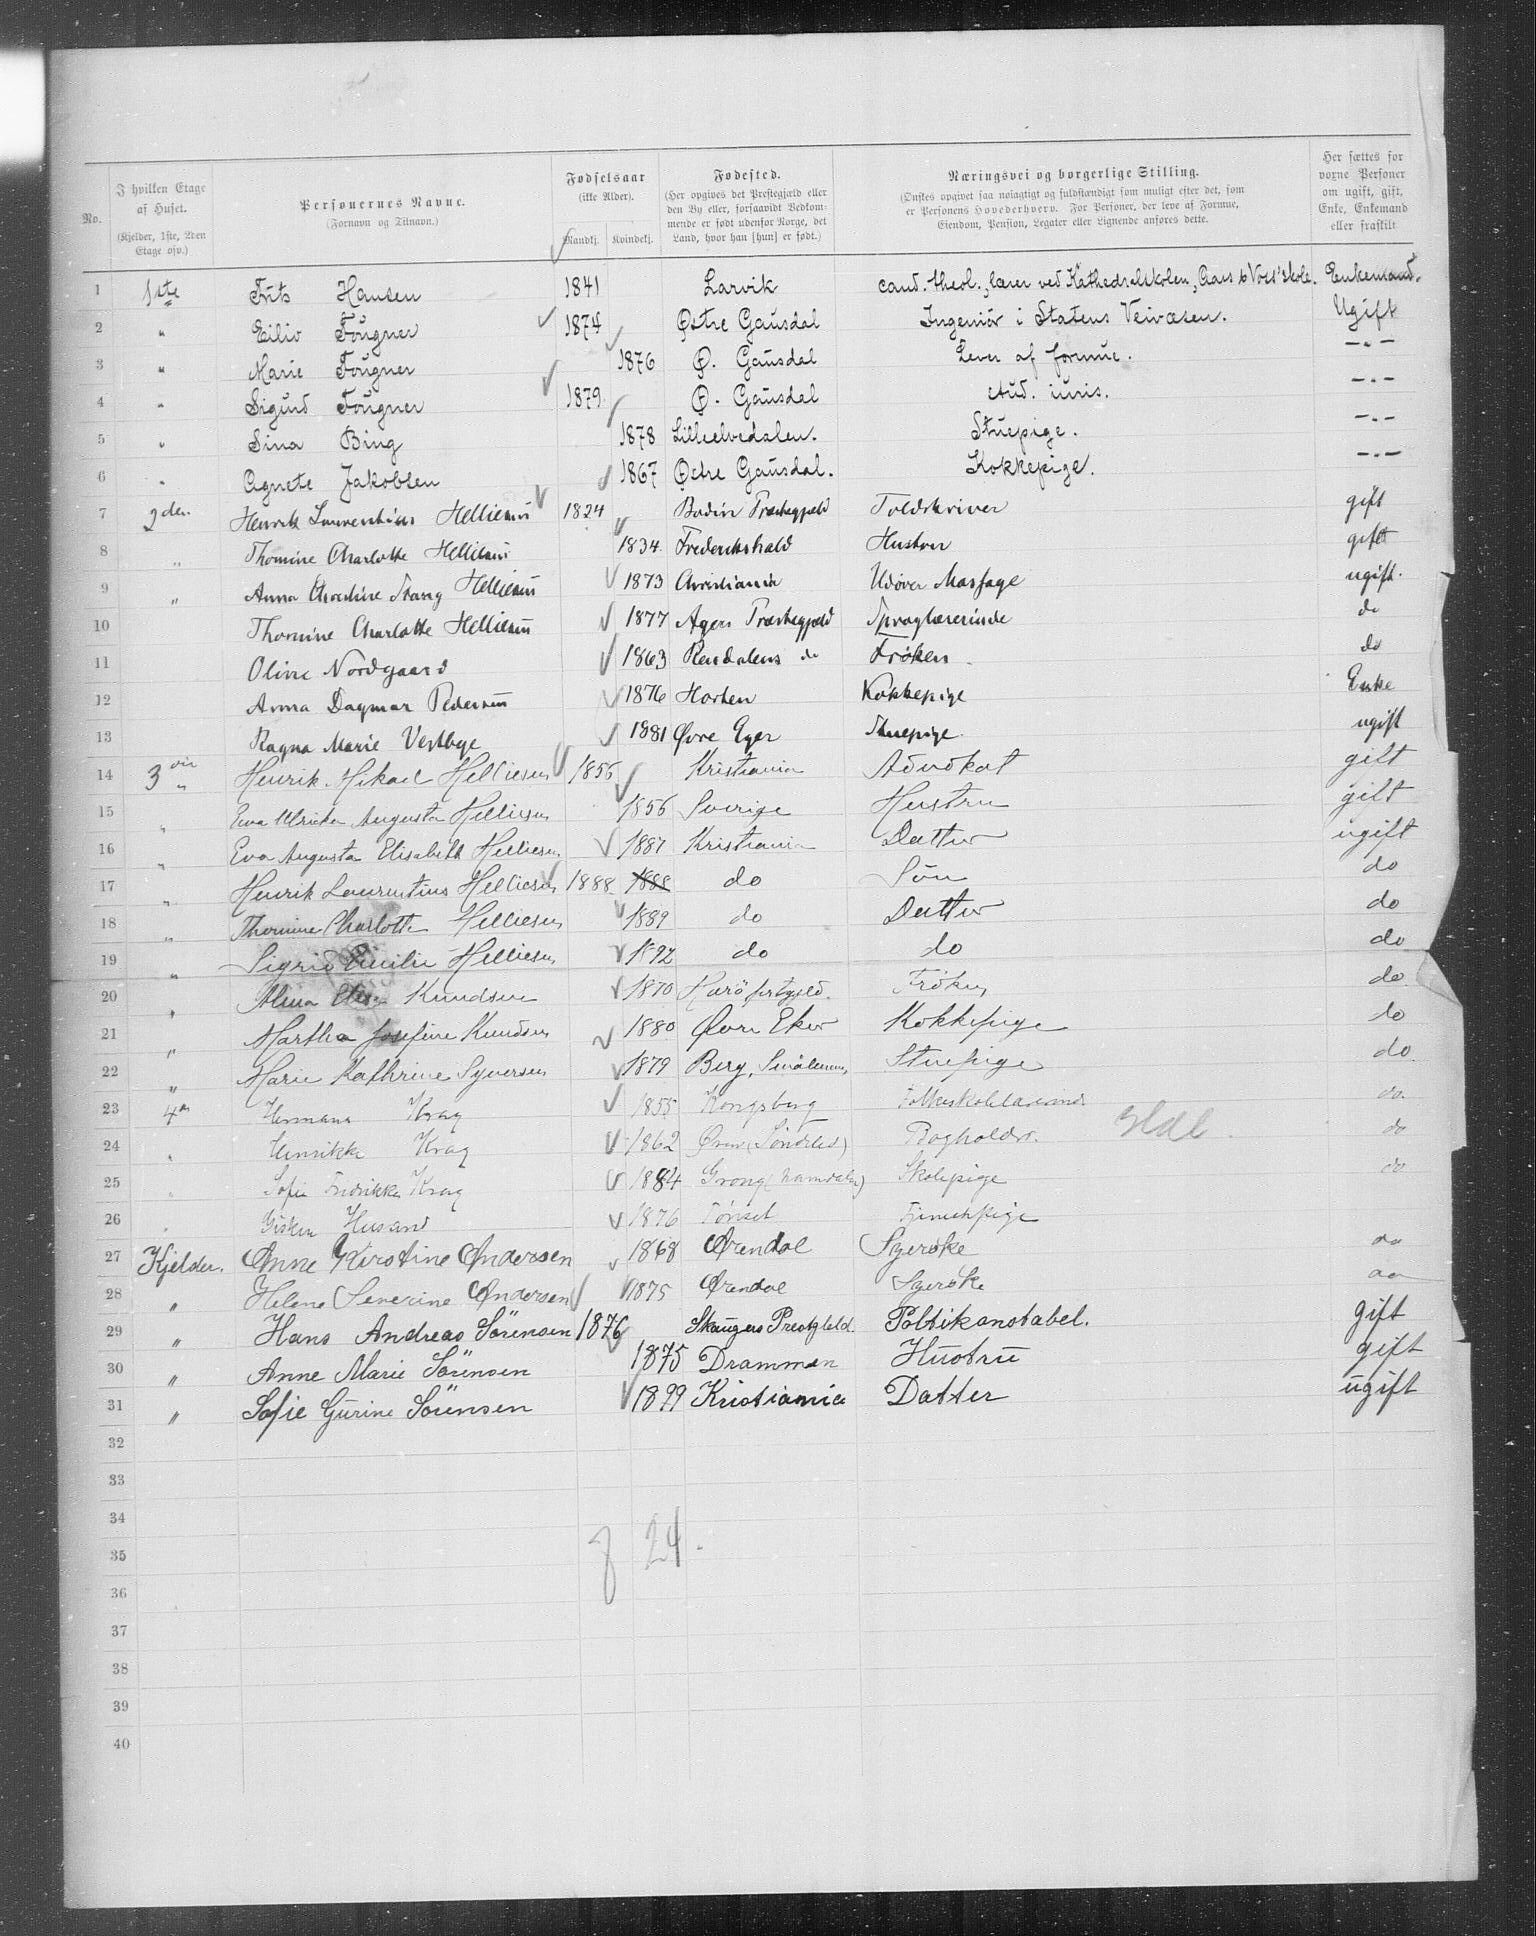 No.
I hvilken Etage af Huset. (Kjelder, 1ste, 2den Etage osv.)
Personernes Navne. (Fornavn og Tilnavn.)
Fødselsaar (ikke Alder). Mandkj. Kvindekj.
Fødested. (Her opgives det Prestegjæld eller den By eller, forsaavidt Vedkommende er født udenfor Norge, det Land, hvor han [hun] er født.)
Næringsvei og borgerlige Stilling. (Ønskes opgivet saa nøiagtigt og fuldstændigt som muligt efter det, som er Personens Hovederhverv. For Personer, der leve af Formue, Eiendom, Pension, Legater eller Lignende anføres dette.)
Her sættes for voxne Personer om ugift, gift, Enke, Enkemand eller fraskilt
1 1ste Frits Hansen 1841 Larvik cand. theol., lærer ved Kathedralskolen, Aars & Voss' skole. Enkemand.
2 " Eiliv Fougner 1874 Østre Gausdal Ingeniør i Statens Veivæsen. Ugift
3 " Marie Fougner 1876 Ø. Gausdal Lever af formue. -"-
4 " Sigurd Fougner 1879 Ø. Gausdal stud. iuris. -"-
5 " Sina Bing 1878 Lilleelvedalen. Stuepige. -"-
6 " Agnete Jakobsen 1867 Østre Gausdal. Kokkepige. -"-
7 2den Henrik Laurentius Helliesen 1824 Bodin Præstegjeld Toldskriver gift
8 " Thomine Charlotte Helliesen 1834 Frederikshald Hustru gift
9 " Anna Christine Stang Helliesen 1873 Christiania Udøver Massage ugift.
10 Thomine Charlotte Helliesen 1877 Agers Præstegjeld Sproglærerinde do
11 Oline Nordgaard 1863 Rendalens do Frøken do
12 Anna Dagmar Pedersen 1876 Horten Kokkepige Enke
13 Ragna Marie Vestbye 1881 Øvre Eger Stuepige. ugift
14 3die " Henrik Mikael Helliesen 1856 Kristiania Advokat gift
15 " Eva Ulricka Augusta Helliesen 1856 Sverige Hustru gift
16 " Eva Augusta Elisabeth Helliesen 1887 Kristiania Datter ugift
17 " Henrik Laurentius Helliesen 1888 1888 do Søn do
18 " Thomine Charlotte Helliesen 1889 do Datter do
19 " Sigrid Emilie Helliesen 1892 do do do
20 " Alma Knudsen 1870 Frøken do
21 " Martha Josefine Knudsen 1880 Øvre Eker Kokkepige do
22 " Marie Kathrine Syversen 1879 Berg, Smålenene Stuepige do
23 4 Hermana Krag 1855 Kongsberg Folkeskolelærerinde do
24 " Henrikke Krag 1862 (Søndeled) Bogholder. do
25 " Sofie Fredrikke Krag 1884 Grong (Namdalen) Skolepige do
26 " Gisken Husand 1876 Tønset Tjenestepige
27 Kjelder. Anne Kirstine Andersen 1868 Ørendal Syerske do
28 " Helene Severine Andersen 1875 Ørendal Syerske do
29 " Hans Andreas Sörensen 1876 Skaugers Prestgleld. Politikonstabel. gift
30 " Anne Marie Sörensen 1875 Drammen Hustru gift
31 " Sofie Gurine Sörensen 1899 Kristiania Datter ugift
32
33
34
7 24.
35
36
37
38
39
40